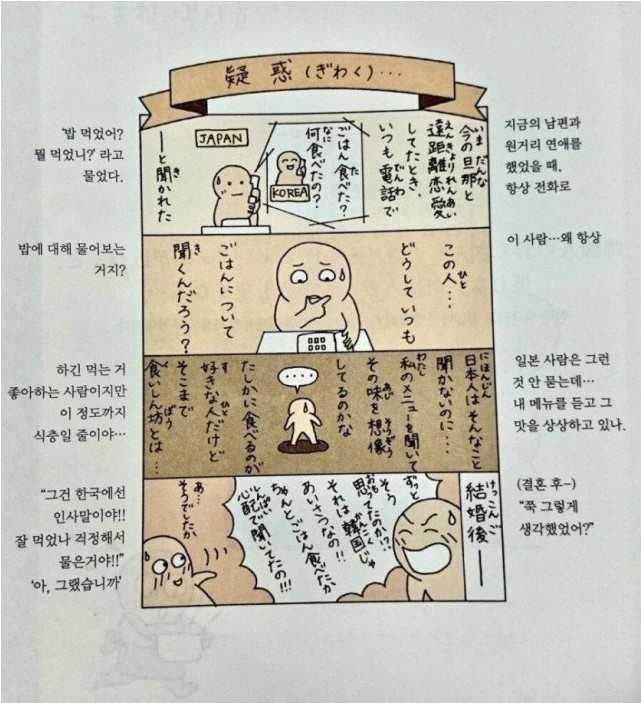 疑惑(ぎわく)…
지금의 남편과
원거리 연애를
했었을 때,
항상 전화로
'밥 먹었어?
뭘 먹었니?' 라고
물었다.
今の旦那と
遠距離恋愛
してたとき、
いつも電話で
ごはん食べた?
何食べたの?
KOREA
JAPAN
――と聞かれた
이 사람…왜 항상
밥에 대해 물어보는
거지?
この人…
どうしていつも
ごはんについて
聞くんだろう?
일본 사람은 그런
것 안 묻는데…
내 메뉴를 듣고 그
맛을 상상하고 있나.
하긴 먹는 거
좋아하는 사람이지만
이 정도까지
식충일 줄이야…
日本人はそんなこと
聞かないのに…
私のメニューを聞いて
その味を想像
してるのかな
……
たしかに食べるのが
好きな人だけど
そこまで
食いしん坊とは…
(결혼 후-)
"쭉 그렇게
생각했었어?"
"그건 한국에선
인사말이야!!
잘 먹었나 걱정해서
물은거야!!"
'아, 그랬습니까'
結婚後――
ずっと
そう
思ってたのか!?
それは韓国じゃ
あいさつなの!!
ちゃんとごはん食べたか
心配で聞いてたの!!!
あ…
そうでしたか